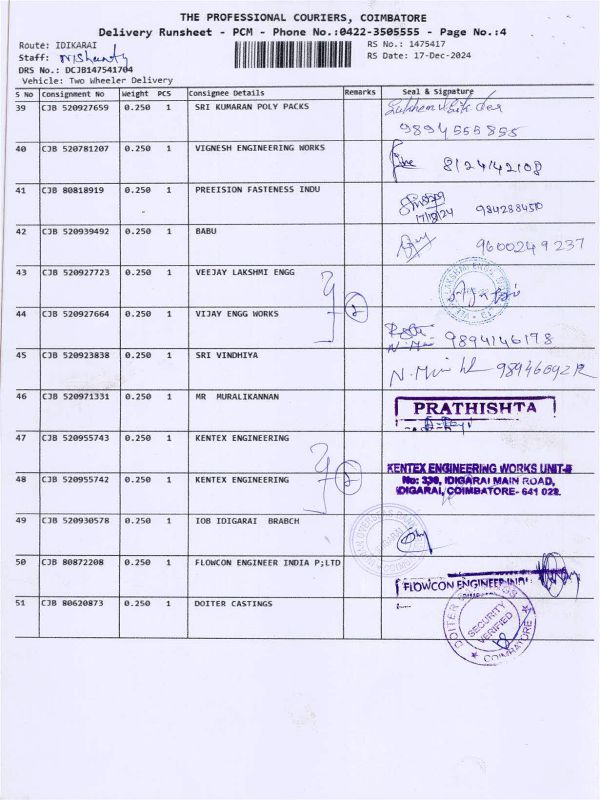 THE PROFESSIONAL COURIERS, COIMBATORE
Delivery Runsheet - PCM - Phone No.:0422-3505555 - Page No.:4
Route: IDIKARAI
RS No.: 1475417
Staff:
RS Date: 17-Dec-2024
DRS No.: DCJB147541704
Vehicle: Two Wheeler Delivery
S No Consignment No Weight PCS Consignee Details Remarks Seal & Signature
39 CJB 520927659 0.250 1 SRI KUMARAN POLY PACKS
9894555855
40 CJB 520781207 0.250 1 VIGNESH ENGINEERING WORKS 8124142108
41 CJB 80818919 0.250 1 PREEISION FASTENESS INDU
17/12/24 9842884510
42 CJB 520939492 0.250 1 BABU 9600249237
43 CJB 520927723 0.250 1 VEEJAY LAKSHMI ENGG
44 CJB 520927664 0.250 1 VIJAY ENGG WORKS 2
9894146178
45 CJB 520923838 0.250 1 SRI VINDHIYA
46 CJB 520971331 0.250 1 MR MURALIKANNAN PRATHISHTA
47 CJB 520955743 0.250 1 KENTEX ENGINEERING
KENTEX ENGINEERING WORKS UNIT-
48 CJB 520955742 0.250 1 KENTEX ENGINEERING 2 No: 339, IDIGARAI MAIN ROAD,
IDIGARAI, COIMBATORE- 641 022.
49 CJB 520930578 0.250 1 IOB IDIGARAI BRABCH
50 CJB 80872208 0.250 1 FLOWCON ENGINEER INDIA P;LTD
FLOWCON ENGINEER
51 CJB 80620873 0.250 1 DOITER CASTINGS
DOITER
SECURITY
VERIFIED
COIMBATORE